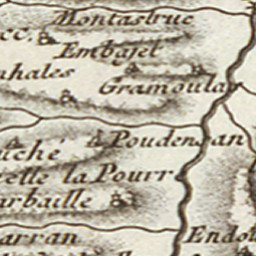 Montastruc
cc.
Embajet
nhales
Gramoulas
Poudensan
uché
elle la Pourr
arbaille
arran
Endou